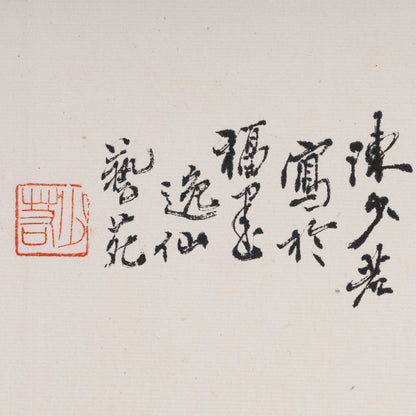 陳少若
寫於
福建
逸仙
藝苑
少若